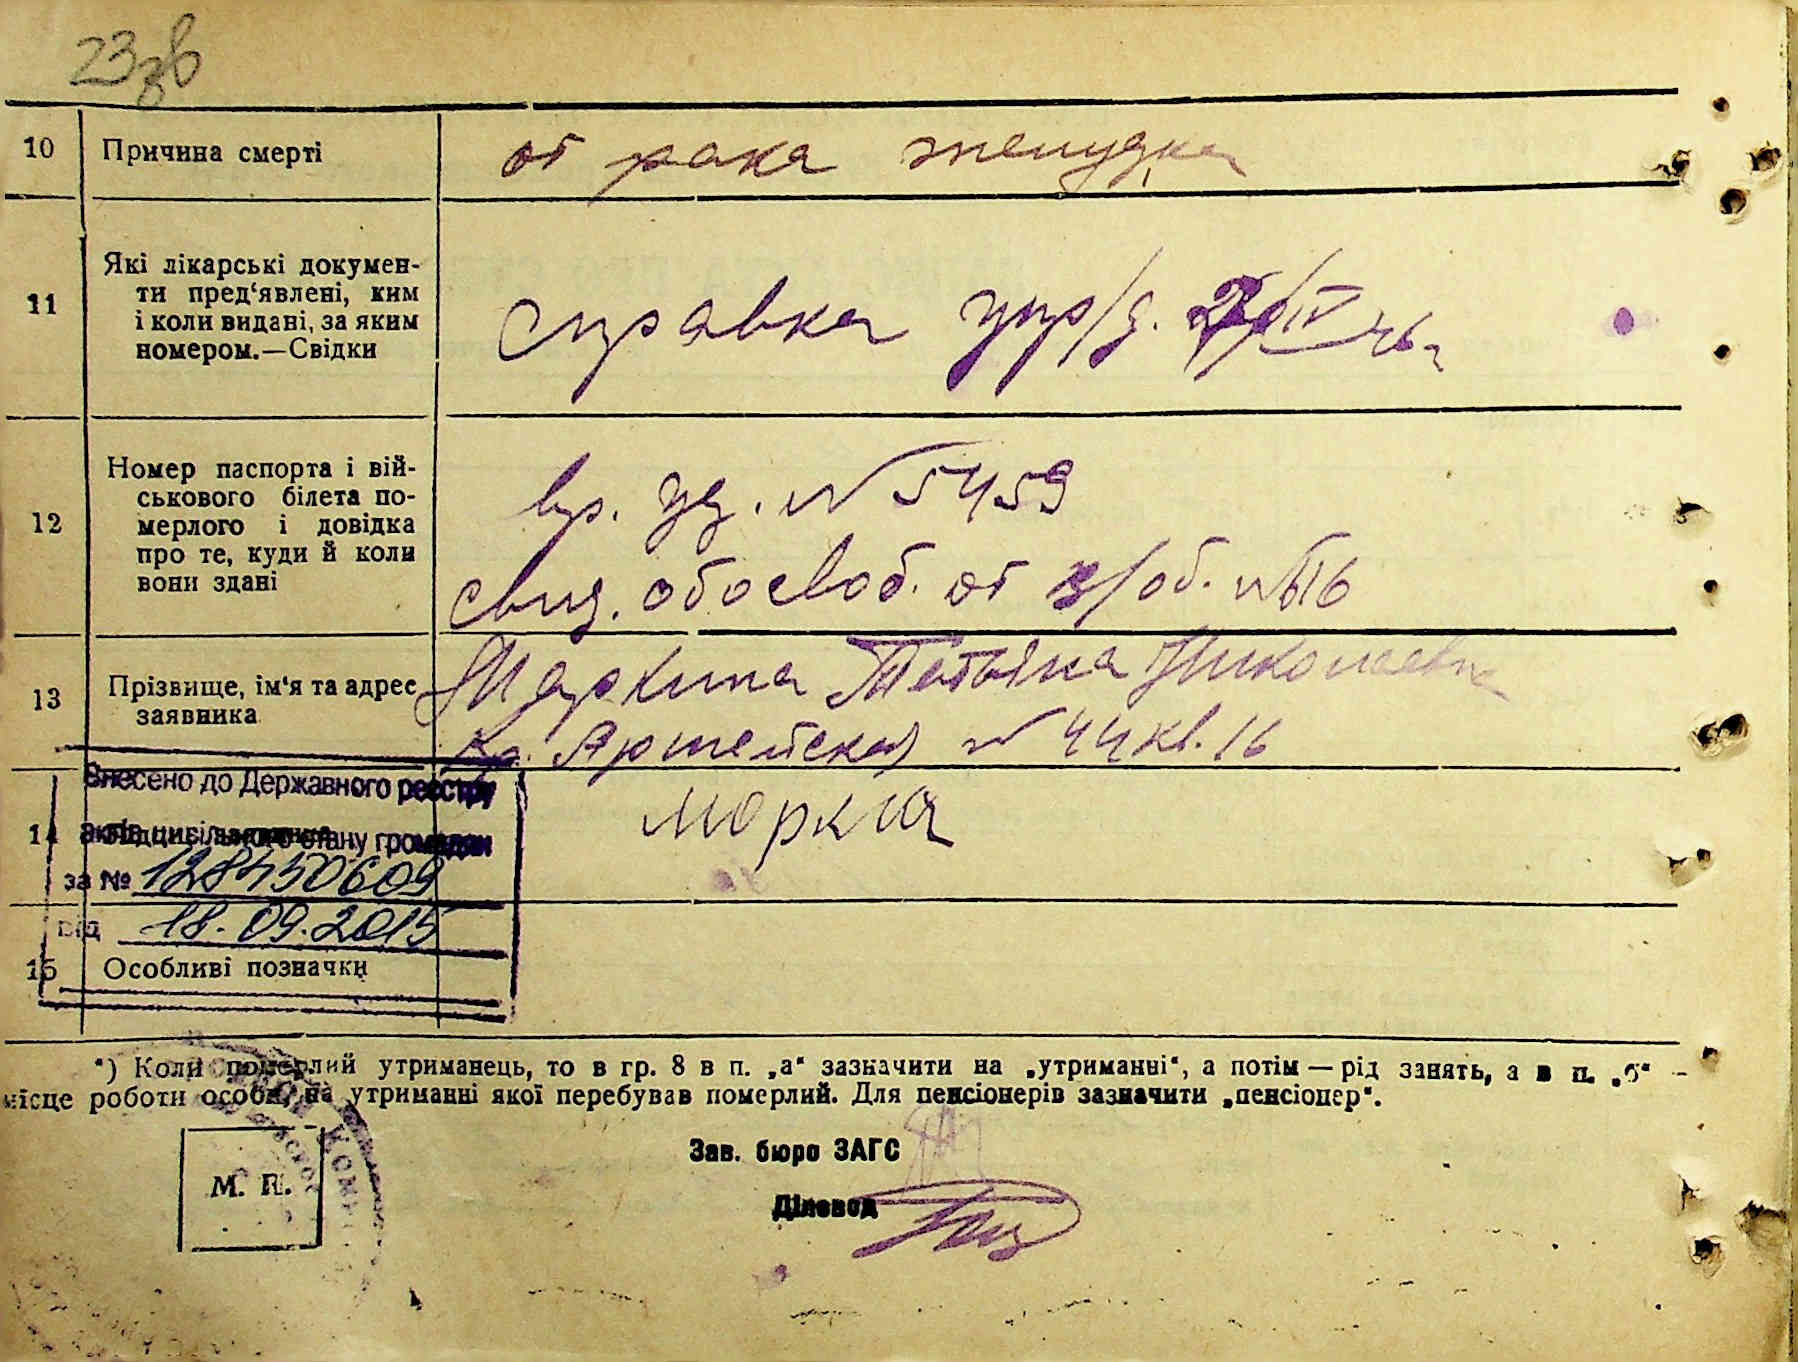 10 Причина смерті от рака желудка
11 Які лікарські докумен-
ти пред‘явлені, ким
і коли видані, за яким
номером.—Свідки
справка упр/д. IV 46 г
12 Номер паспорта і вій-
ськового білета по-
мерлого і довідка
про те, куди й коли
вони здані
вр. уд. № 5459
свид. об освоб. от в/об. №
13 Прізвище, ім‘я та адрес
заявника
Маркина Татьяна Николаевна
Кр. Армейская № 44 кв. 16
Внесено до Державного реєстру
14 актів цивільного стану громадян
Маркина
за № 128450609
від 18.09.2015
15 Особливі позначки
*) Коли померлий утриманець, то в гр. 8 в п. „а“ зазначити на „утриманні“, а потім — рід занять, а в п. „б“ —
місце роботи особи, на утриманні якої перебував померлий. Для пенсіонерів зазначити „пенсіонер“.
Зав. бюро ЗАГС
М. П.
Діловод